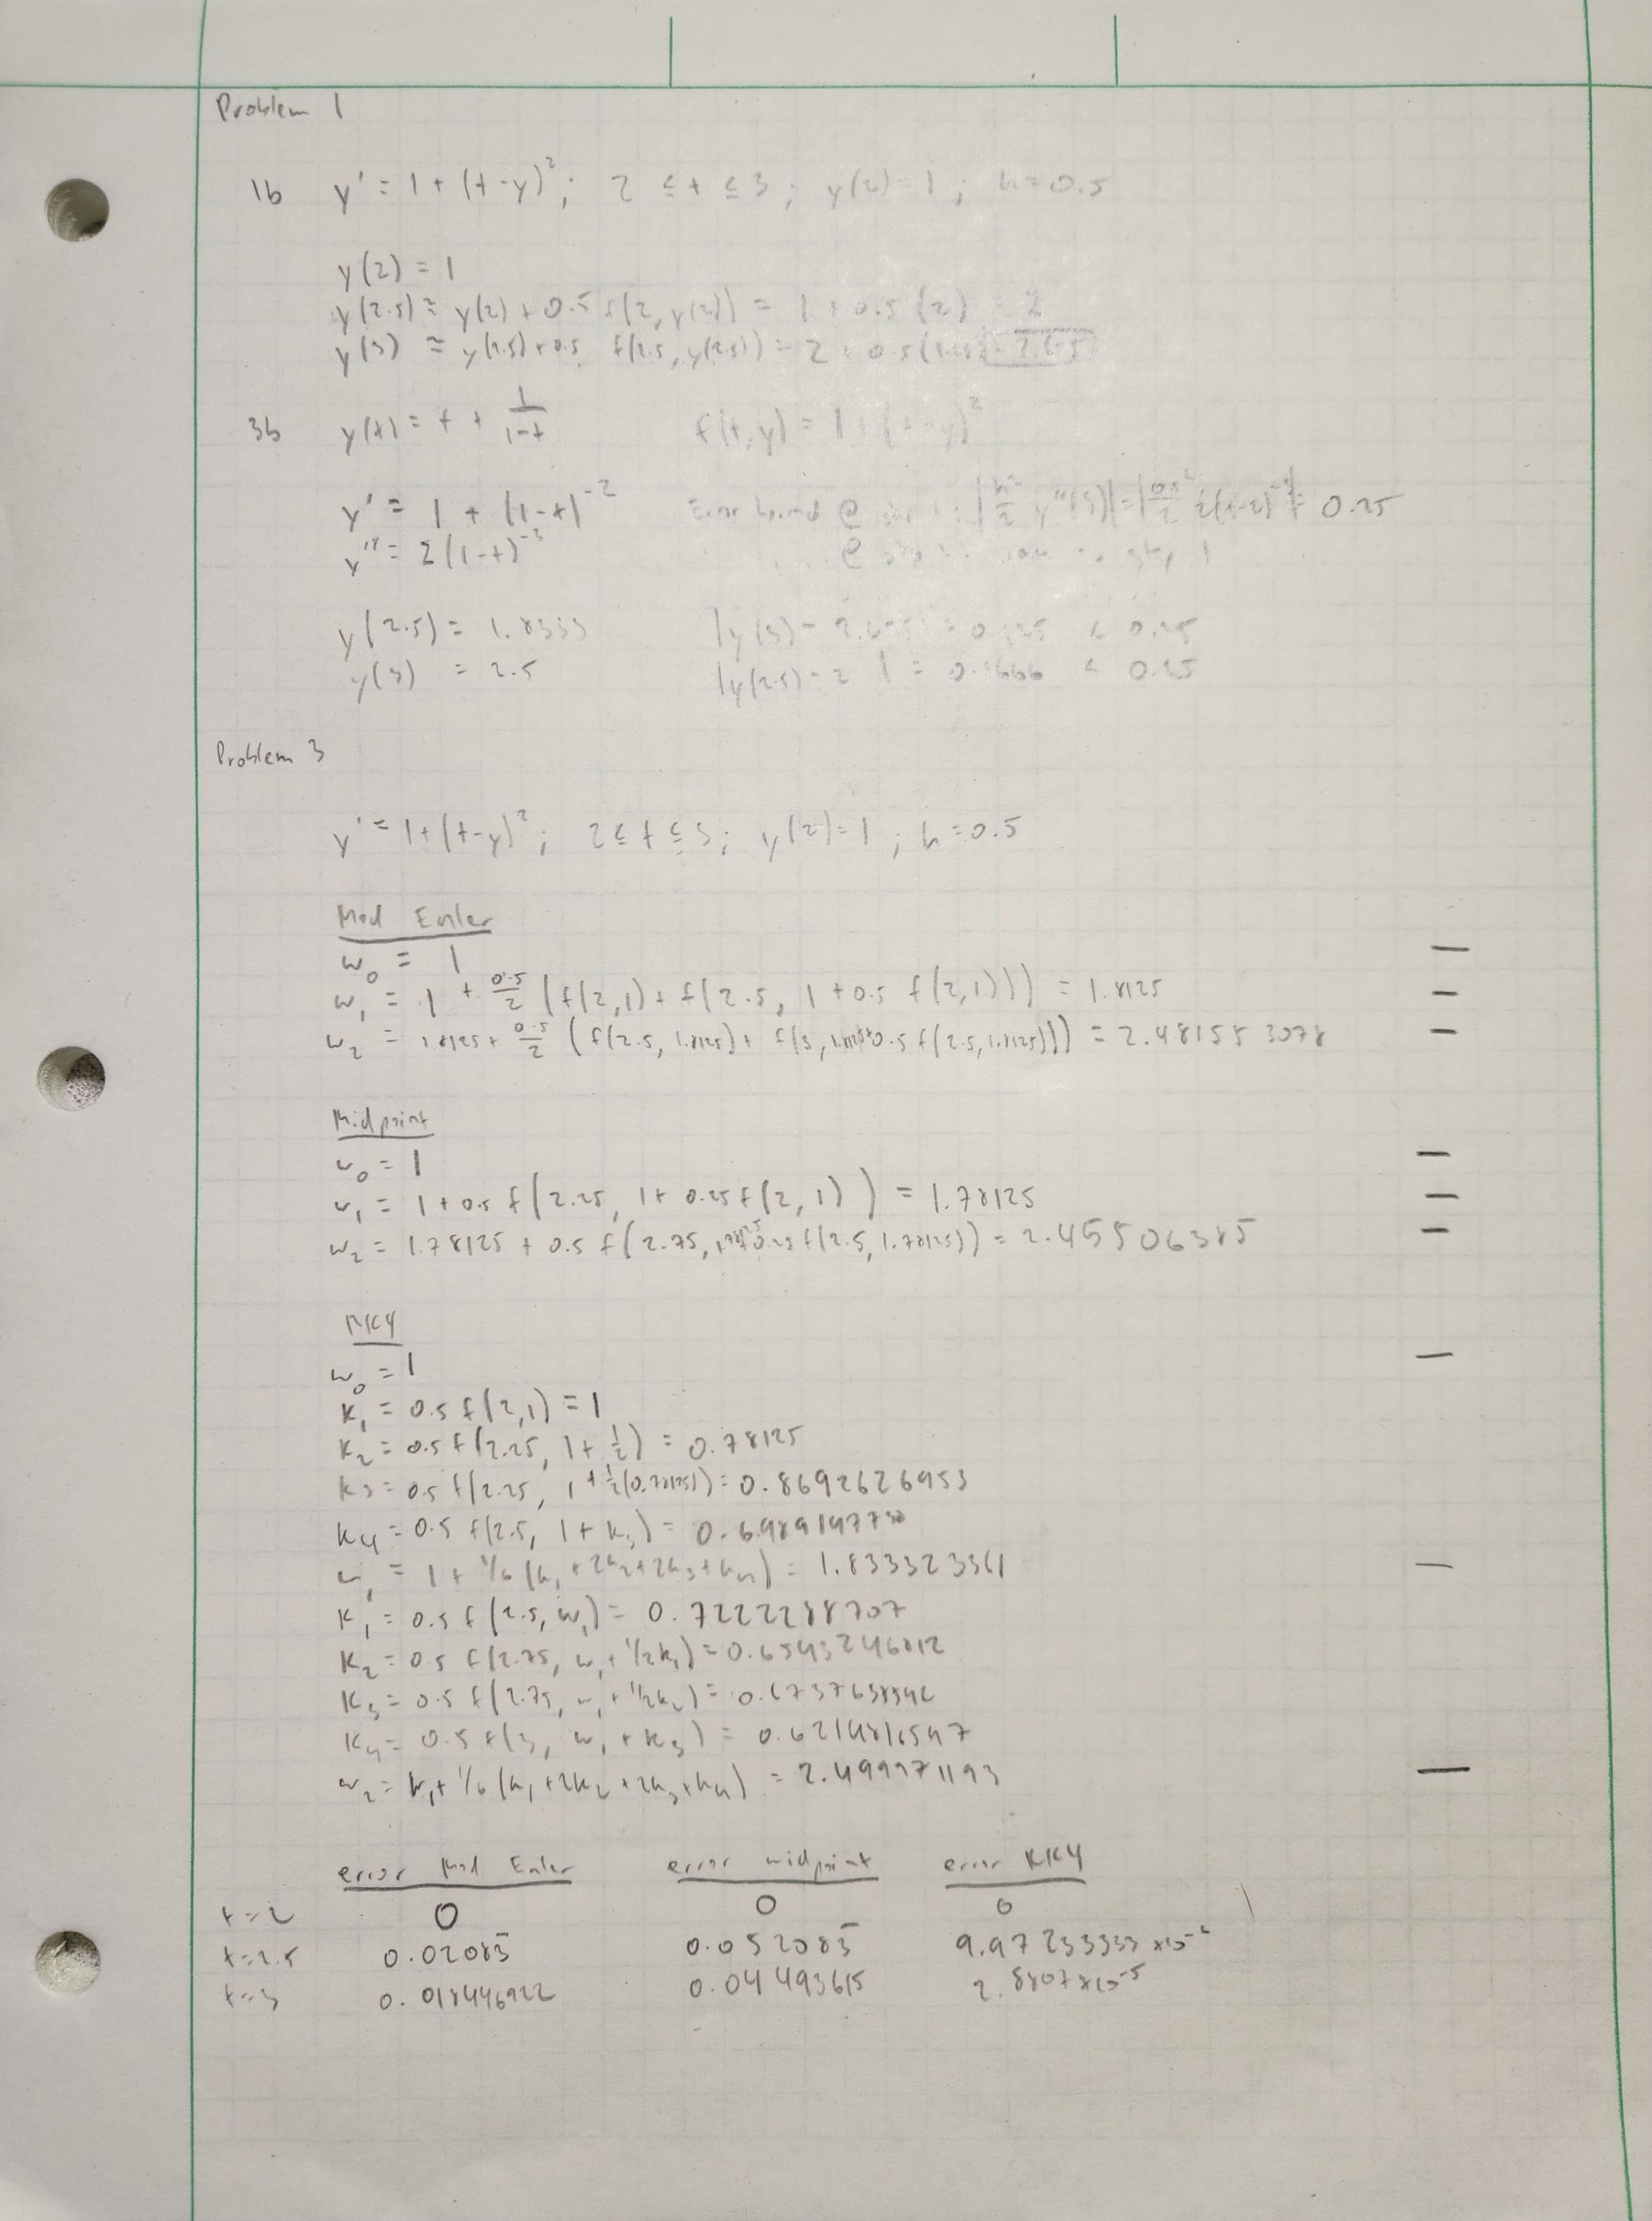 Problem 1
1b y' = 1 + (t-y)²; 2 ≤ t ≤ 3; y(2)=1; h=0.5
y(2) = 1
y(2.5) ≈ y(2) + 0.5 f(2, y(2)) = 1 + 0.5 (2) = 2
y(3) ≈ y(2.5) + 0.5 f(2.5, y(2.5)) = 2 + 0.5
3b y(t) = t + 1/(1-t) f(t,y) = 1 + (t-y)²
y' = 1 + (1-t)⁻² Error bound @ = 0.25
y'' = 2(1-t)⁻³ @ step 1
y(2.5) = 1.8333 |y(3) - < 0.25
y(3) = 2.5 |y(2.5) - 2 | = 0.1666 < 0.25
Problem 3
y' = 1+(t-y)²; 2 ≤ t ≤ 3; y(2)=1; h=0.5
Mod Euler
w₀ = 1
w₁ = 1 + 0.5/2 (f(2,1) + f(2.5, 1 + 0.5 f(2,1))) = 1.8125
w₂ = 1.8125 + 0.5/2 (f(2.5, 1.8125) + f(3, 1.8125+0.5 f(2.5, 1.8125))) = 2.481553078
Midpoint
w₀ = 1
w₁ = 1 + 0.5 f(2.25, 1 + 0.25 f(2, 1)) = 1.78125
w₂ = 1.78125 + 0.5 f(2.75, 1.78125+0.25 f(2.5, 1.78125)) = 2.455506385
RK4
w₀ = 1
K₁ = 0.5 f(2,1) = 1
K₂ = 0.5 f(2.25, 1 + 1/2) = 0.78125
K₃ = 0.5 f(2.25, 1 + 1/2(0.78125)) = 0.8692626953
K₄ = 0.5 f(2.5, 1 + K₃) =
w₁ = 1 + 1/6 (K₁ + 2K₂ + 2K₃ + K₄) = 1.833323361
K₁ = 0.5 f(2.5, w₁) = 0.7222288707
K₂ = 0.5 f(2.75, w₁ + 1/2K₁) = 0.6543246812
K₃ = 0.5 f(2.75, w₁ + 1/2K₂) =
K₄ = 0.5 f(3, w₁ + K₃) =
w₂ = w₁ + 1/6 (K₁ + 2K₂ + 2K₃ + K₄) = 2.499971193
error Mod Euler error midpoint error RK4
t=2 0 0 0
t=2.5 0.02083 0.052083
t=3 0.018446922 0.04493615 2.8807×10⁻⁵